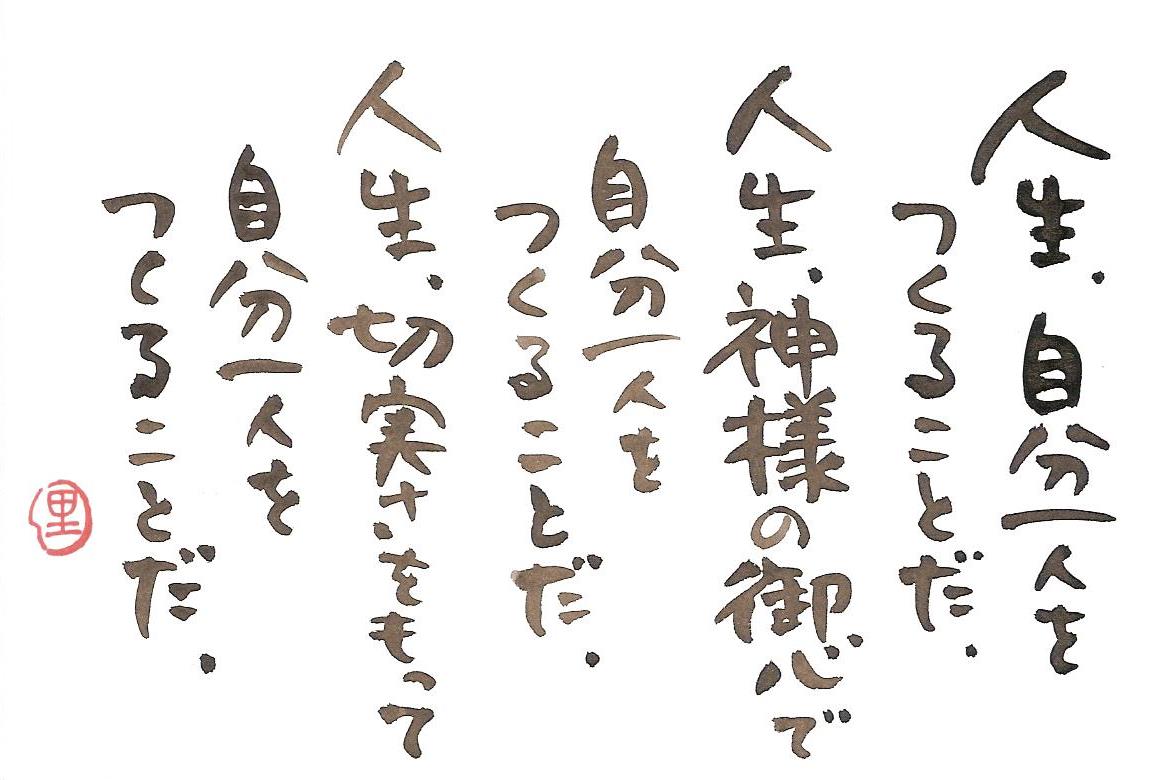 人生.自分一人を
つくることだ.
人生.神様の御心で
自分一人を
つくることだ.
人生.切実さをもって
自分一人を
つくることだ.
里